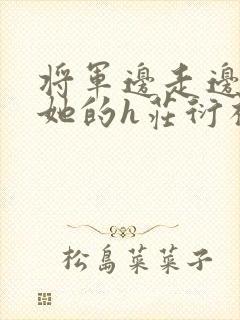 將軍邊走邊
她的h莊衍
松島菜菜子